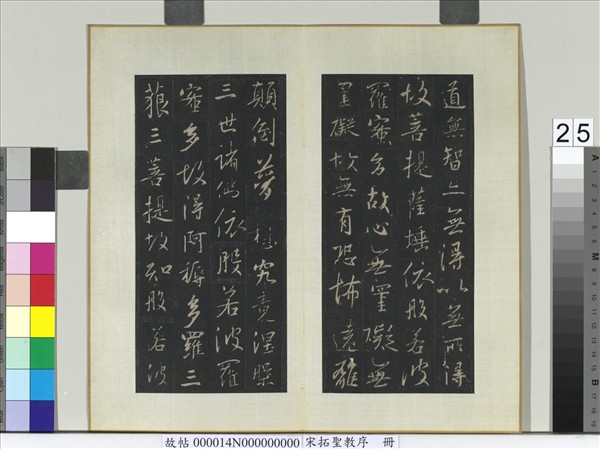 道無智亦無得以無所得
故菩提薩埵依般若波
羅蜜多故心無罣礙無
罣礙故無有恐怖遠離
顛倒夢想究竟涅槃
三世諸佛依般若波羅
蜜多故得阿耨多羅三
藐三菩提故知般若波
25
A
M
B
故帖 000014N000000000 宋拓聖教序 冊